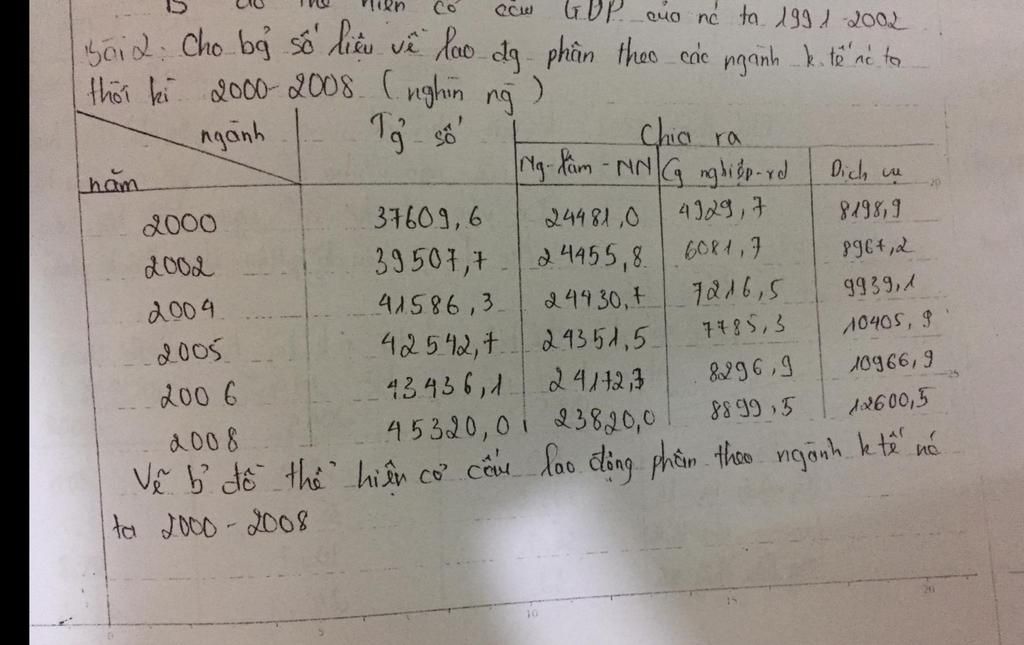 hiện cơ cấu GDP của nc ta 1991-2002
Bài 2: Cho bả số liệu về lao đg phân theo các ngành k.tế nc ta
thời kì 2000-2008 (nghìn ng)
ngành Tổ số Chia ra
năm Ng-lâm-NN Cg nghiệp-xd Dịch vụ
2000 37609,6 24481,0 4929,7 8198,9
2002 39507,7 24455,8 6081,7 8967,2
2004 41586,3 24430,7 7216,5 9939,1
2005 42542,7 24351,5 7785,3 10405,9
2006 43436,1 24172,3 8296,9 10966,9
2008 45320,0 23820,0 8899,5 12600,5
Vẽ b đồ thể hiện cơ cấu lao động phân theo ngành k tế nc
ta 2000-2008
5 10 15 20